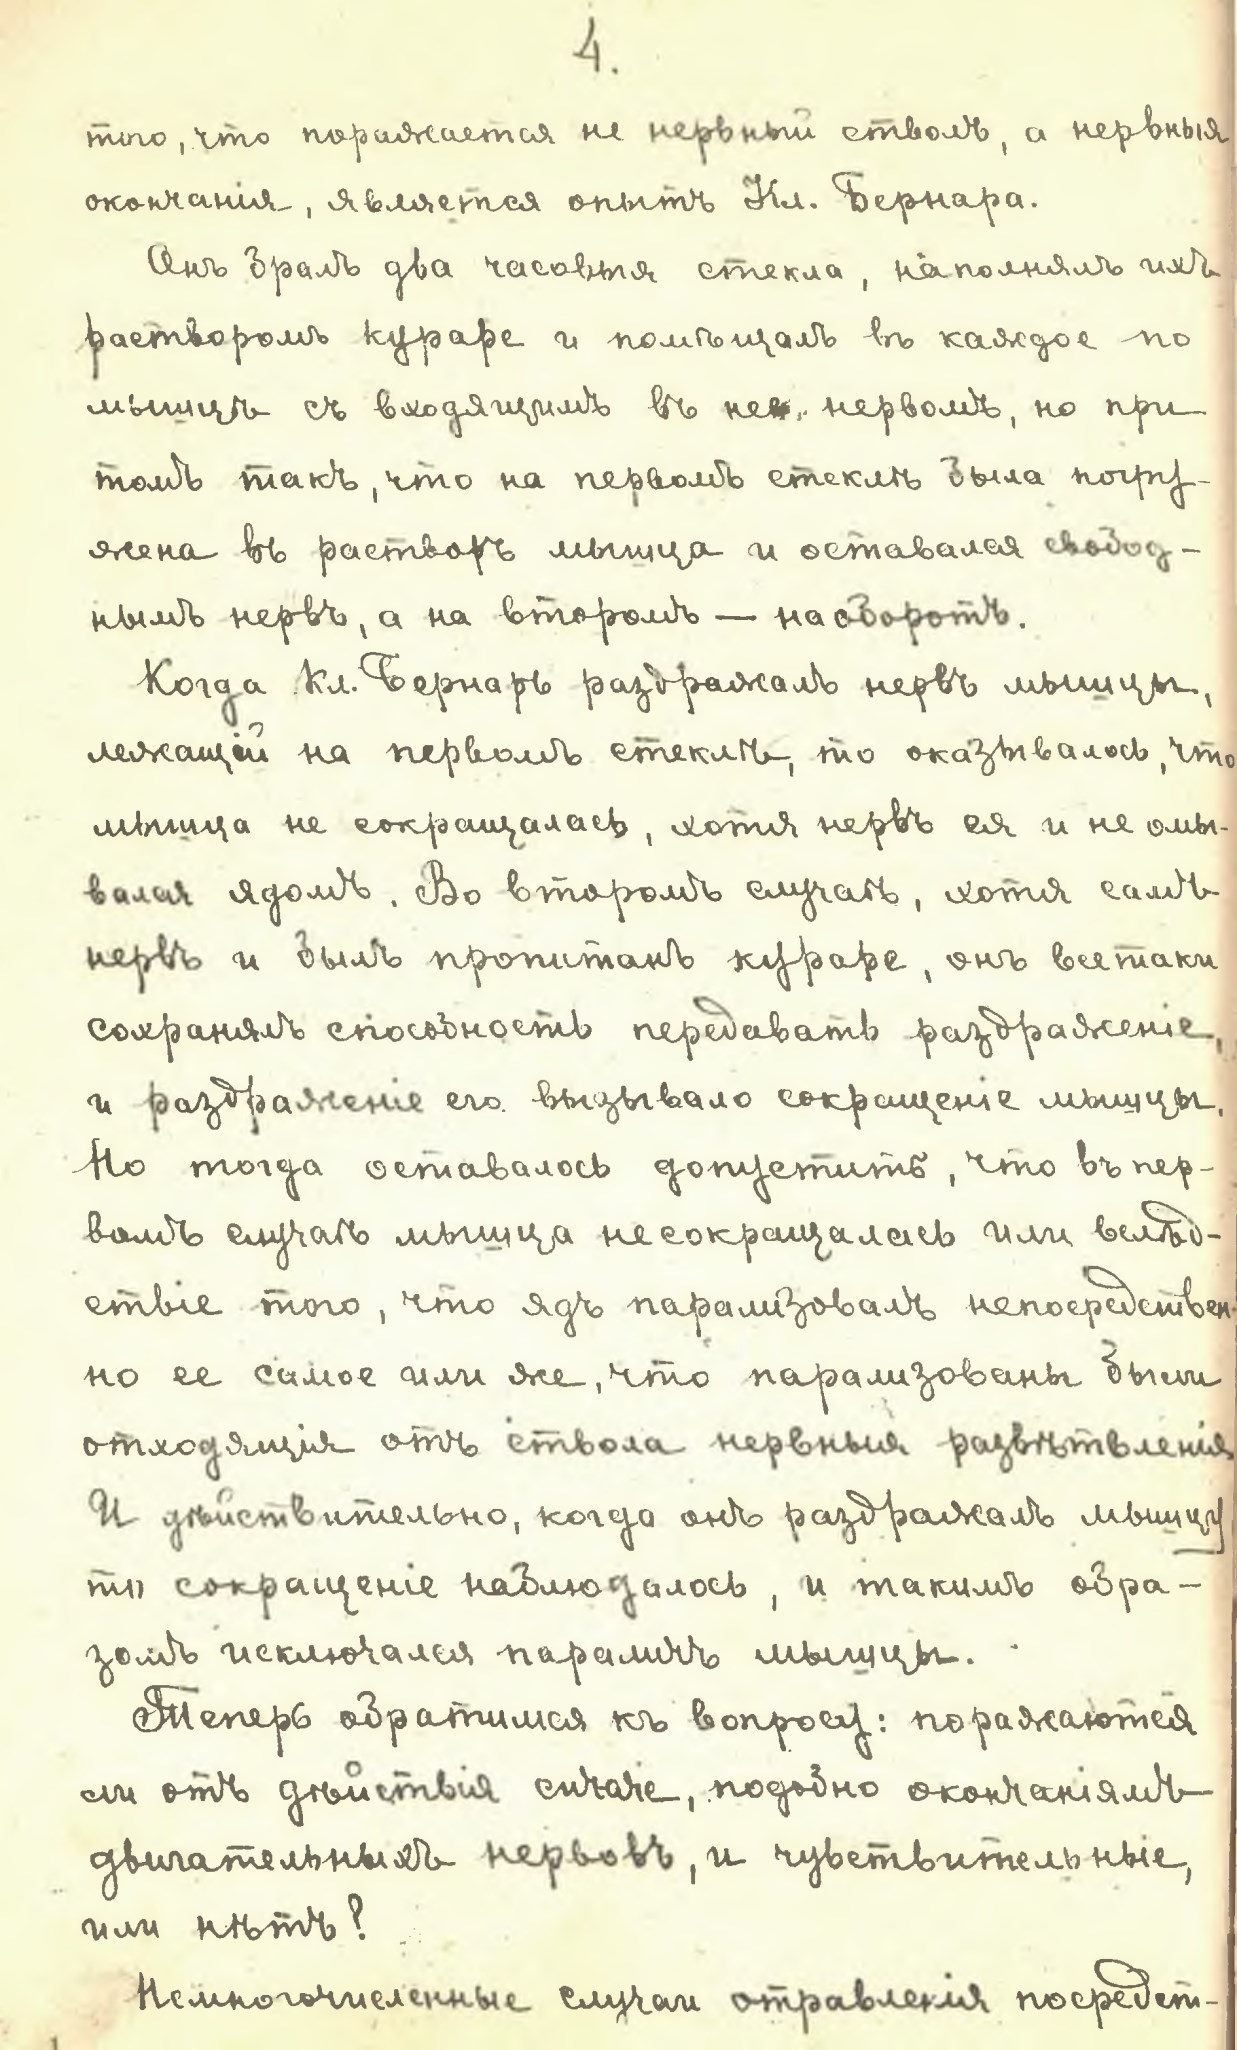 4.
того, что поражается не нервный стволъ, а нервныя
окончанія, является опытъ Кл. Бернара.
Онъ бралъ два часовыя стекла, наполнялъ ихъ
растворомъ кураре и помѣщалъ въ каждое по
мышцѣ съ входящимъ въ нее нервомъ, но при
томъ такъ, что на первомъ стеклѣ была погру-
жена въ растворъ мышца и оставался свобод-
нымъ нервъ, а на второмъ — наоборотъ.
Когда Кл. Бернаръ раздражалъ нервъ мышцы,
лежащій на первомъ стеклѣ, то оказывалось, что
мышца не сокращалась, хотя нервъ ея и не омы-
вался ядомъ. Во второмъ случаѣ, хотя самъ
нервъ и былъ пропитанъ кураре, онъ всетаки
сохранялъ способность передавать раздраженіе,
и раздраженіе его вызывало сокращеніе мышцы.
Но тогда оставалось допустить, что въ пер-
вомъ случаѣ мышца не сокращалась или вслѣд-
ствіе того, что ядъ парализовалъ непосредствен-
но ее самое или же, что парализованы были
отходящія отъ ствола нервныя развѣтвленія
И дѣйствительно, когда онъ раздражалъ мышцу
то сокращеніе наблюдалось, и такимъ обра-
зомъ исключался параличъ мышцы.
Теперь обратимся къ вопросу: поражаются
ли отъ дѣйствія curare, подобно окончаніямъ
двигательныхъ нервовъ, и чувствительные,
или нѣтъ?
Немногочисленные случаи отравленія посредст-